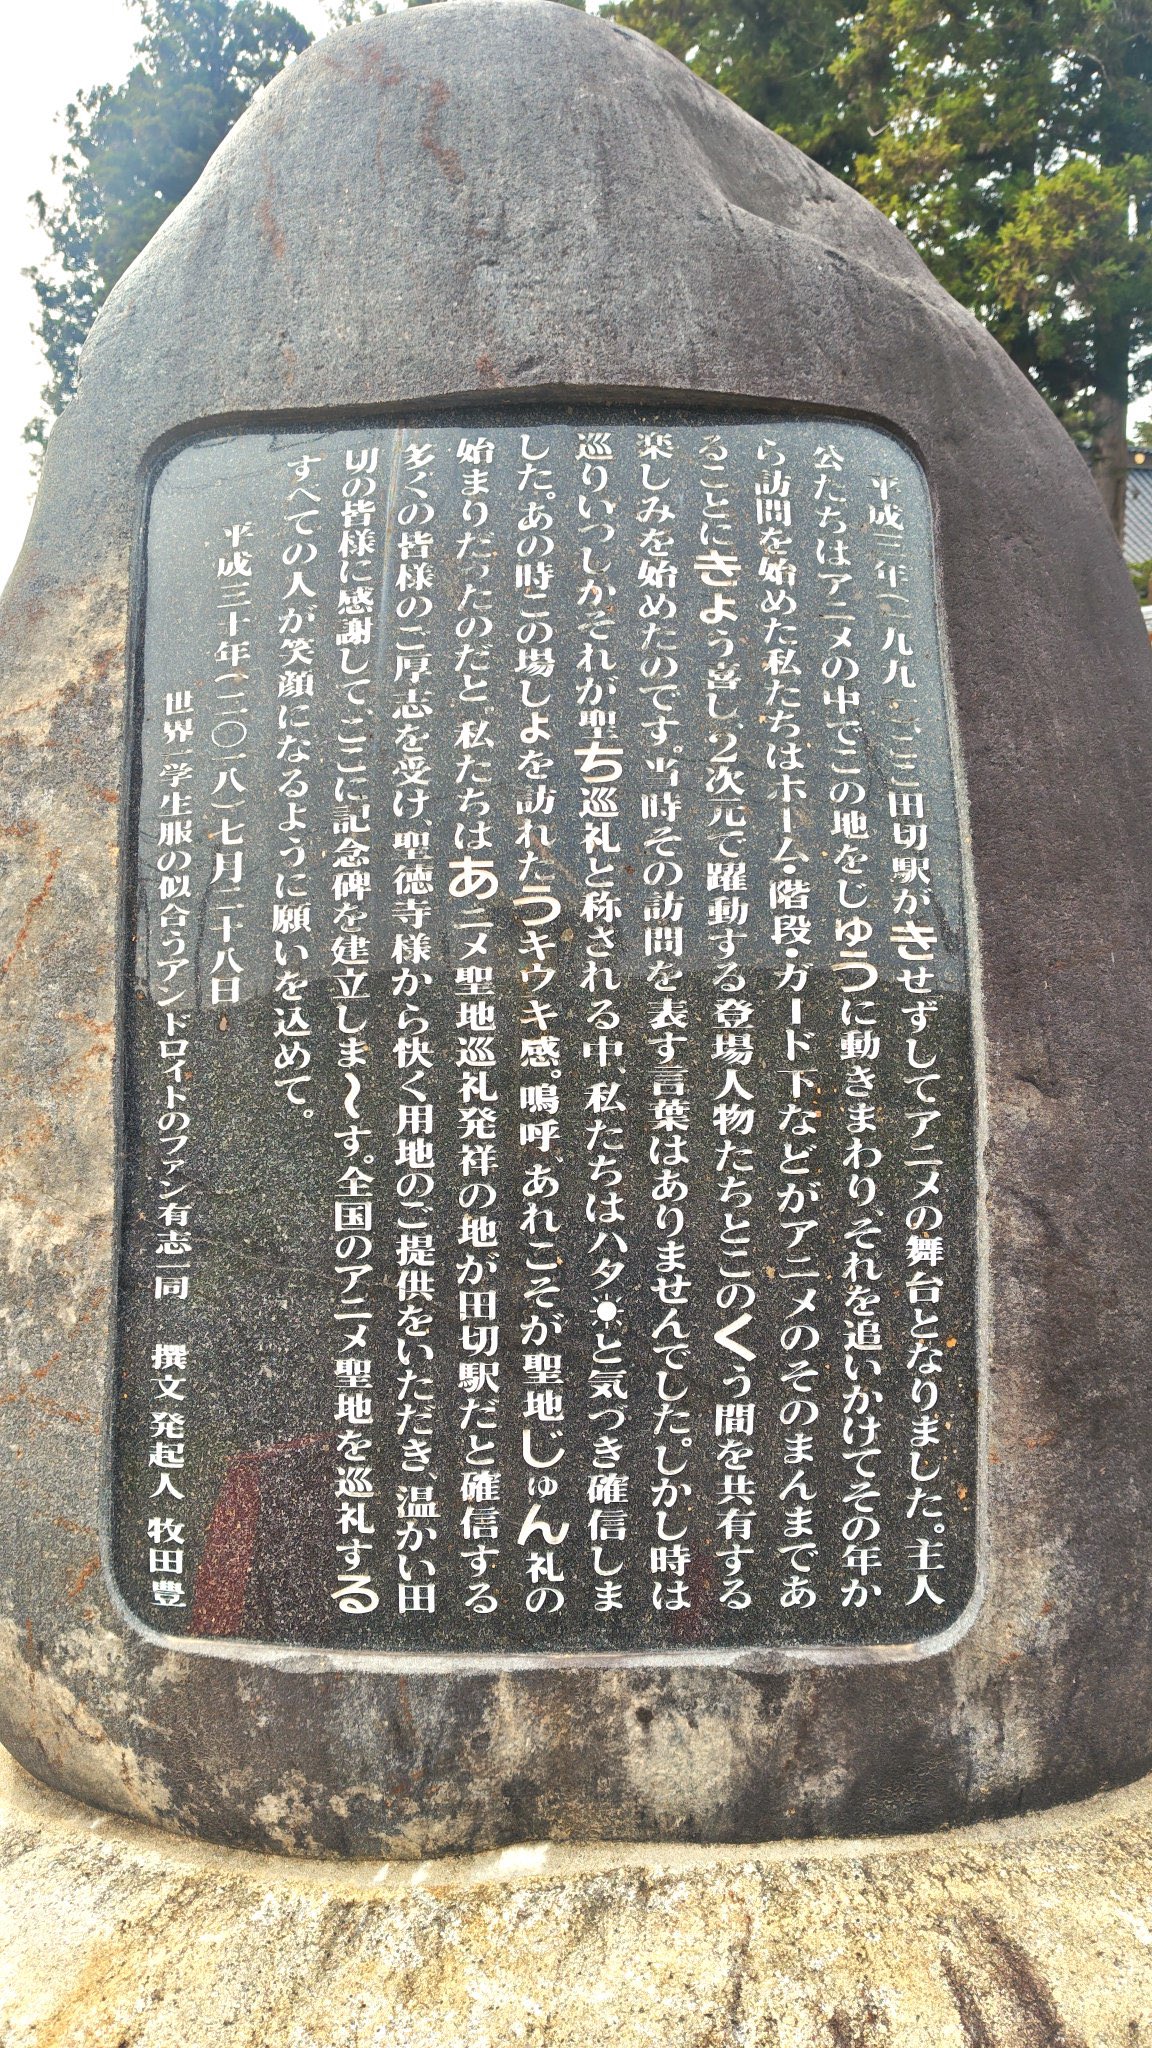 平成三年(一九九一)、田切駅がきせずしてアニメの舞台となりました。主人
公たちはアニメの中でこの地をじゅうに動きまわり、それを追いかけてその年か
ら訪問を始めた私たちはホーム・階段・ガード下などがアニメのそのまんまであ
ることにきょう喜し、2次元で躍動する登場人物たちとこのくう間を共有する
楽しみを始めたのです。当時その訪問を表す言葉はありませんでした。しかし時は
巡りいつしかそれが聖ち巡礼と称される中、私たちはハタ☀と気づき確信しま
した。あの時この場しよを訪れたうキウキ感。嗚呼、あれこそが聖地じゅん礼の
始まりだったのだと。私たちはあニメ聖地巡礼発祥の地が田切駅だと確信する
多くの皆様のご厚志を受け、聖徳寺様から快く用地のご提供をいただき、温かい田
切の皆様に感謝して、ここに記念碑を建立しま〜す。全国のアニメ聖地を巡礼する
すべての人が笑顔になるように願いを込めて。
平成三十年(二〇一八)七月二十八日
世界一学生服の似合うアンドロイドのファン有志一同 撰文 発起人 牧田豐